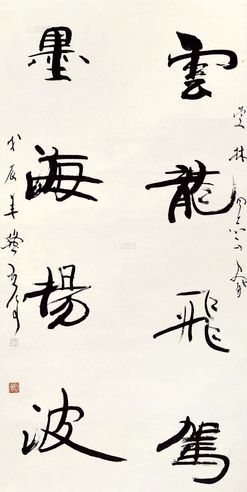 雲龍飛駕
墨海揚波
戊辰年